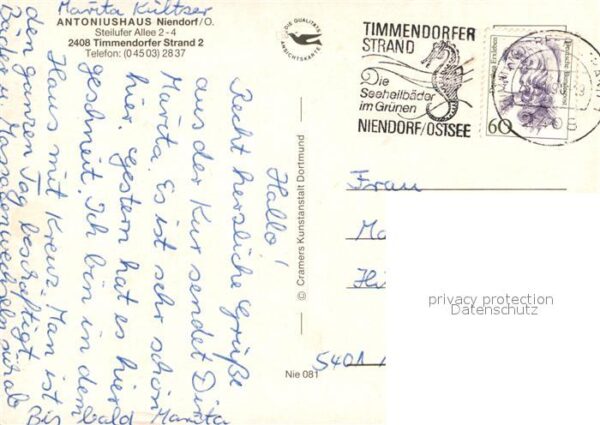 Marita Kültzer
ANTONIUSHAUS Niendorf/O.
Steilufer Allee 2 - 4
2408 Timmendorfer Strand 2
Telefon: (0 45 03) 28 37
Hallo!
Recht herzliche Grüße
aus der Kur sendet Dir
Marita. Es ist sehr schön
hier. gestern hat es hier
geschneit. Ich bin in dem
Haus mit Kreuz. Man ist
den ganzen Tag beschäftigt
Bäder u. Massagen wechseln sich ab
Bis bald Marita
DIE QUALITÄTS
ANSICHTSKARTE
© Cramers Kunstanstalt Dortmund
Nie 081
TIMMENDORFER
STRAND
Die
Seeheilbäder
im Grünen
NIENDORF/OSTSEE
Deutsche Bundespost
60
Frau
Ma
Hi
5401
privacy protection
Datenschutz